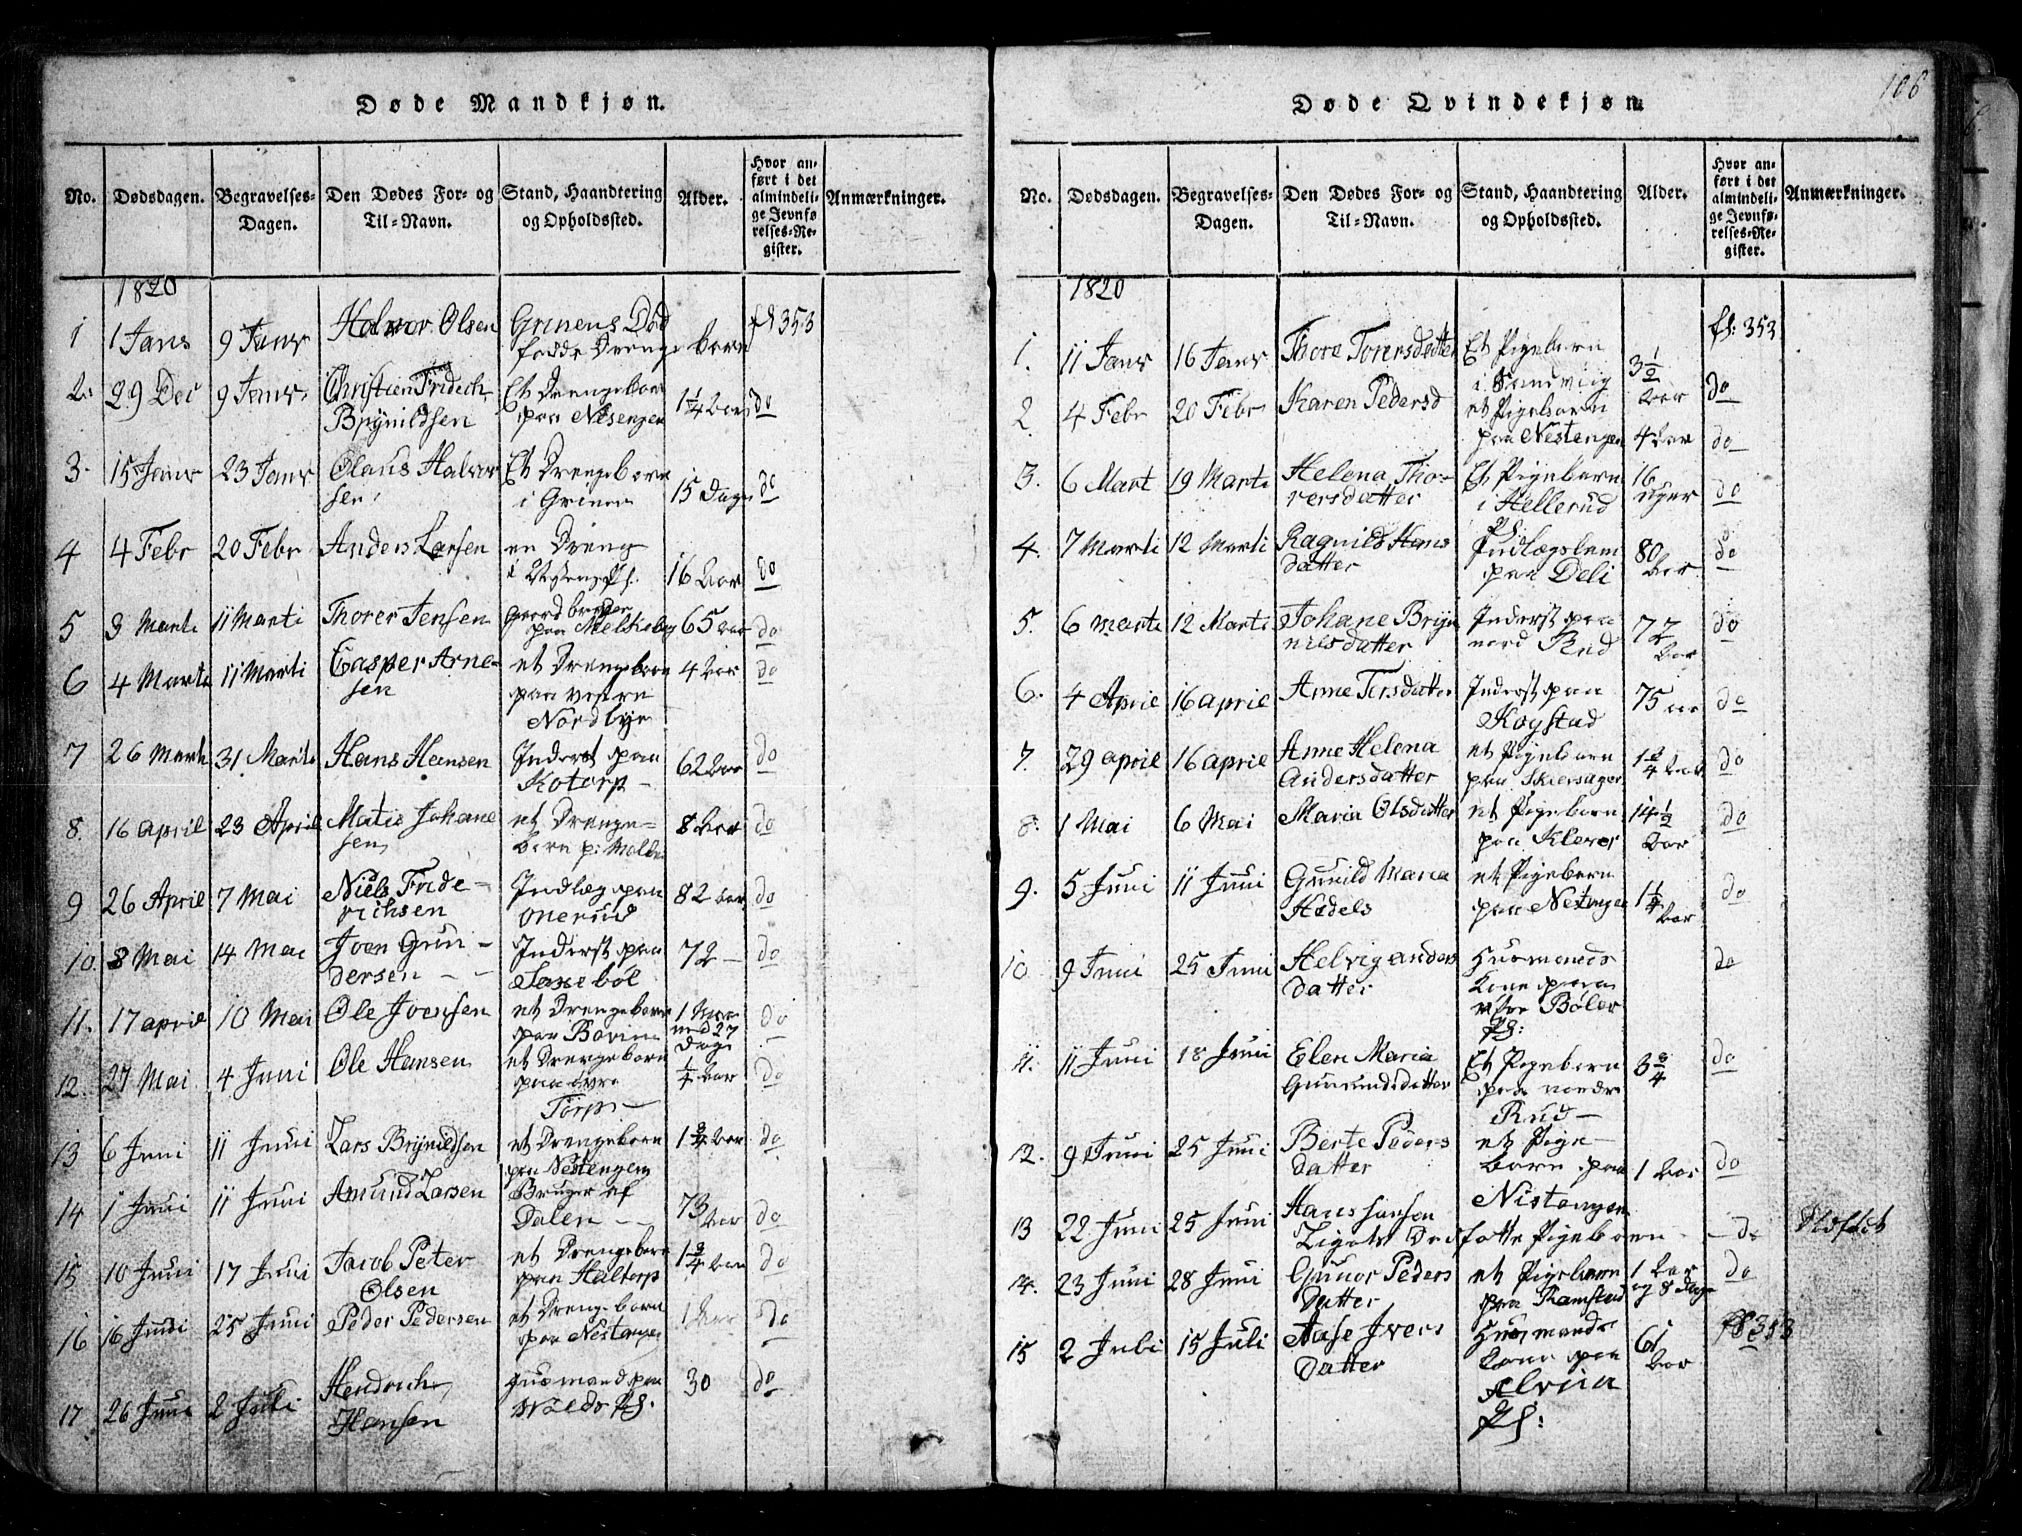 106
Døde Mandkjøn.
No. Dødsdagen. Begravelses-Dagen. Den Dødes For- og Til-Navn. Stand, Haandtering og Opholdssted. Alder. Hvor anført i det almindelige Jevnførelses-Register. Anmærkninger.
1820
1 1 Janv 9 Janv Halvor Olsen Grinens Død fødde Drenge barn fl 353
2. 29 Dec 9 Janv Christian Fridech Brynildsen Et Drengebarn paa Nesengen 1 1/4 aar do
3. 15 Janv 23 Janv Olaus Halvorsen Et Drengebarn i Grinen 15 Dage do
4 4 Febr 20 Febr Anders Larsen en Dreng i 16 aar do
5 3 Marti 11 Marti Thorer Jensen Gaardbruger paa Melkeby 65 aar do
6 4 Marti 11 Marti Casper Arnesen et Drengebarn paa vestre Nordbye 4 aar do
7 26 Marti 31 Marti Hans Hansen Inderst paa Kotorp 62 aar do
8. 16 april 23 April Matis Johanesen et Drengebarn p: Molde 8 aar do
9 26 April 7 Mai Niels Friderichsen Indlæg paa Onerud 82 aar do
10. 8 Mai 14 Mai Joen Gundersen - - Inderst paa Saxebøl 72 - do
11. 17 april 10 Mai Ole Joensen et Drengebarn paa Bovim 1 Maaned 27 Dage do
12. 27 Mai 4 Juni Ole Hansen et Drengebarn paa øvre Torp - 1/4 aar do
13 6 Juni 11 Juni Lars Brynildsen et Drengebarn paa Nestengen 1 3/4 aar do
14 1 Juni 11 Juni Amund Larsen Bruger af Dalen - - 73 aar do
15 10 Juni 17 Juni Jacob Peter Olsen et Drengebarn paa Haltorp 1 3/4 aar do
16 16 Juni 25 Juni Peder Pedersen et Drengebarn paa Nestengen 1 aar do
17 26 Juni 2 Juli Hendrich Hansen Husmand paa 30 do
Døde Qvindekjøn.
No. Dødsdagen. Begravelses-Dagen. Den Dødes For- og Til-Navn. Stand, Haandtering og Opholdssted. Alder. Hvor anført i det almindelige Jevnførelses-Register. Anmærkninger.
1820
1. 11 Janv 16 Janv Thore Torersdatter Et Pigebarn i Sandviig 3 1/2 aar fl: 353
2. 4 Febr 20 Febr Karen Pedersd et Pigebarn paa Nestengen 4 aar do
do
3. 6 Mart 19 Marti Helena Thorersdatter Et Pigebarn i Hellerud 16 uger do
4. 7 Marti 12 Marti Ragnild Hansdatter Indlægslem paa Deli 80 aar do
5. 6 marti 12 Marti Johane Brynnilsdatter Inderst paa nord Rud 72 aar do
6. 4 April 16 april Anne Tersdatter Inderst paa Kogstad 75 aar do
7. 29 april 16 april Anne Helena Andersdatter et Pigebarn paa Skiersager 1 3/4 aar do
8. 1 Mai 6 Mai Maria Olsdatter et Pigebarn paa Klever 14 1/2 aar do
9. 5 Juni 11 Juni Gunild Maria Hødels et Pigebarn paa Nestengen 1 1/4 aar do
10. 9 Juni 25 Juni Helvig andersdatter Husmands Kone paa Bøler Pl: do
11. 11 Juni 18 Juni Elen Maria Gunnundsdatter Et Pigebarn paa nordr Rud - 3 3/4 do
12. 9 Juni 25 Juni Berte Pedersdatter et Pigebarn paa Nistengen 1 aar do
13 22 Juni 25 Juni Hans Jansen Ligets Dødfødte Pigebarn - do
14. 23 Juni 28 Juni Gunor Pedersdatter et Pigebarn paa Ramstad 1 aar og 8 Dage do
15 2 Juli 15 Juli Aase Iversdatter Husmands Kone paa Pl: 61 aar fl 353